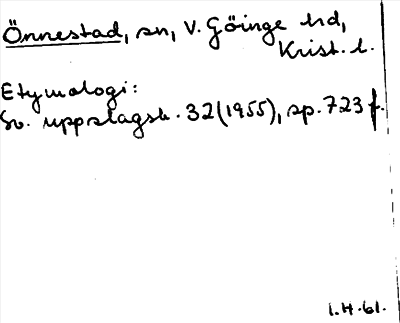 Önnestad, sn, V. Göinge hd,
Krist. l.
Etymologi:
Sv. uppslagsb. 32 (1955), sp. 723 f.
1.H.61.